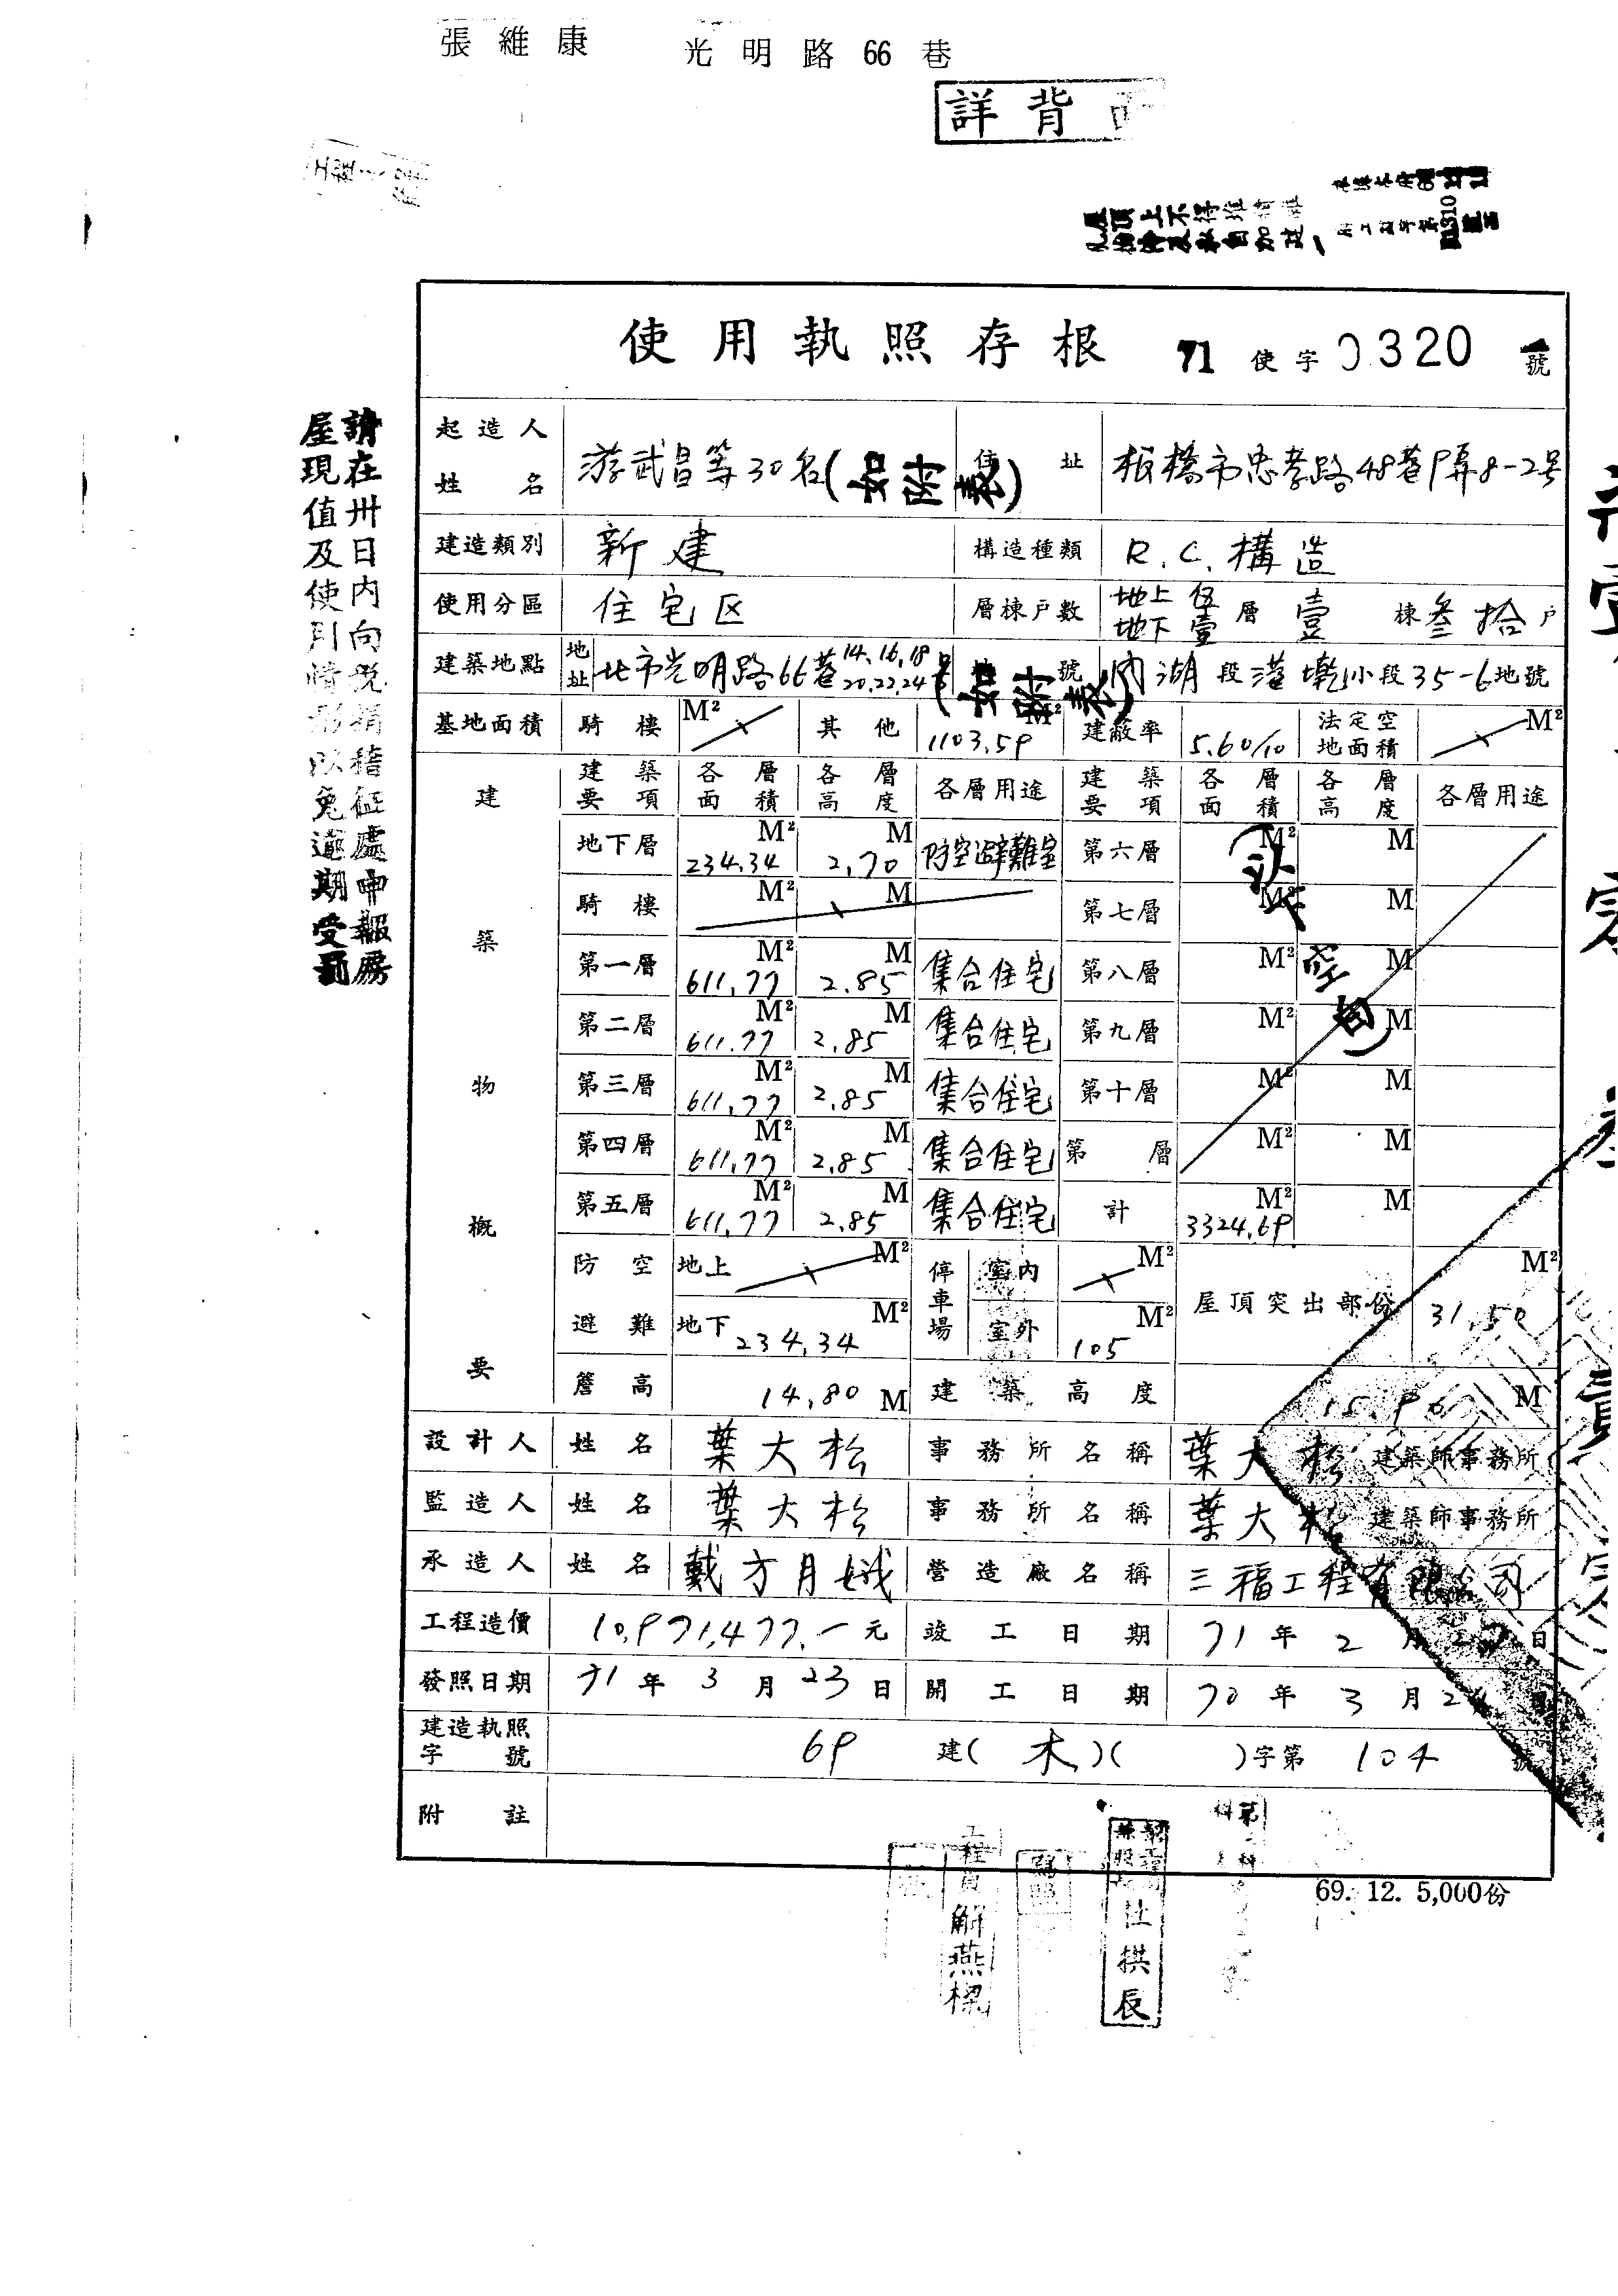 張維康 光明路66巷
詳背
屋頂上不得堆
請在卅日內向稅捐稽征處申報房
屋現值及使用情形以免逾期受罰
使用執照存根 71 使字 0320 號
起造人姓名 游武昌等30名(如附表) 住址 板橋市忠孝路48巷P弄8-2号
建造類別 新建 構造種類 R.C.構造
使用分區 住宅区 層棟戶數 地上伍 地下壹 層 壹 棟 叁拾 戶
建築地點 地址 北市光明路66巷14.16.18 20.22.24号 (如附表) 地號 內湖段港墘小段35-6地號
基地面積 騎樓 M² 其他 1103.59 M² 建蔽率 5.60/10 法定空地面積 M²
建築物概要
建築要項 各層面積 各層高度 各層用途 建築要項 各層面積 各層高度 各層用途
地下層 234.34 M² 2.70 M 防空避難室 第六層 M² M
騎樓 M² M 第七層 M² M
第一層 611.77 M² 2.85 M 集合住宅 第八層 M² M
第二層 611.77 M² 2.85 M 集合住宅 第九層 M² M
第三層 611.77 M² 2.85 M 集合住宅 第十層 M² M
第四層 611.77 M² 2.85 M 集合住宅 第 層 M² M
第五層 611.77 M² 2.85 M 集合住宅 計 3324.69 M² M
(以下空白)
防空避難 地上 M² 停車場 室內 M² 屋頂突出部份 31.50 M²
地下 234.34 M² 室外 105 M²
簷高 14.80 M 建築高度 15.90 M
設計人 姓名 葉大松 事務所名稱 葉大松 建築師事務所
監造人 姓名 葉大松 事務所名稱 葉大松 建築師事務所
承造人 姓名 戴方月娥 營造廠名稱 三福工程有限公司
工程造價 10,971,477.一元 竣工日期 71年2月 日
發照日期 71年3月23日 開工日期 70年3月 日
建造執照字號 69 建(木)( )字第 104 號
附註
69. 12. 5,000份
工程員 解燕樑
拱辰